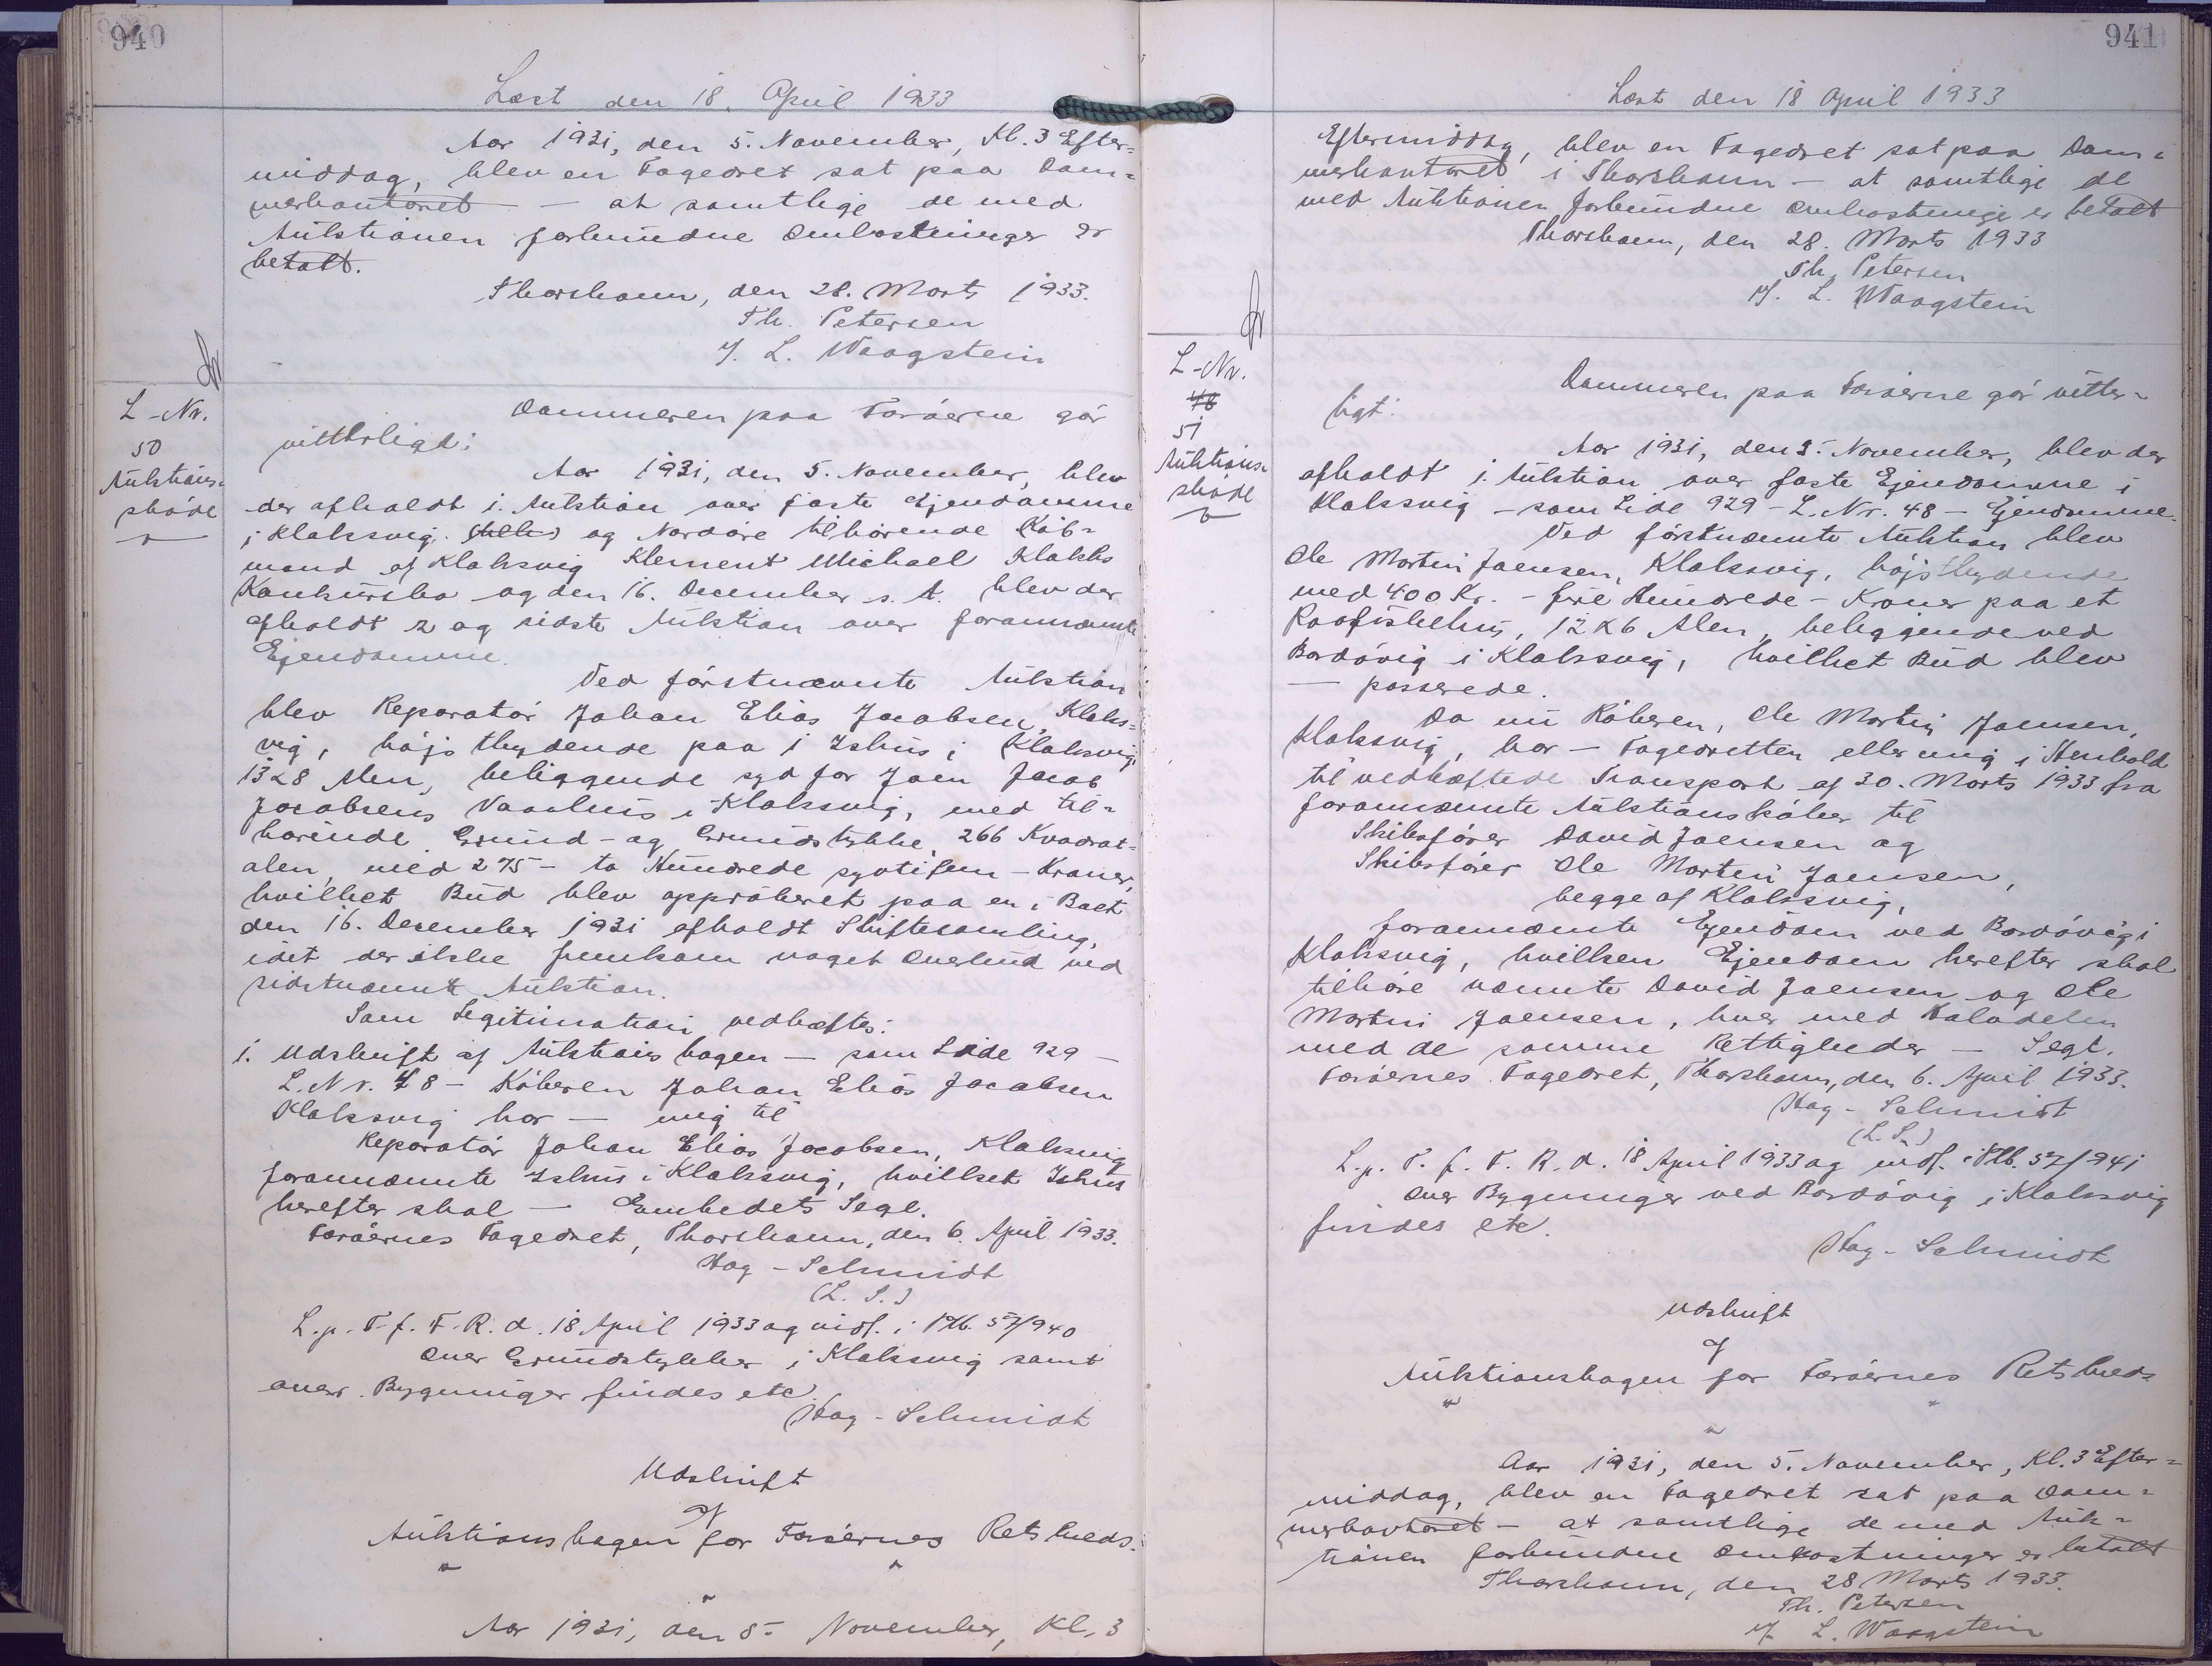 940
Læst den 18. April 1933
Aar 1931, den 5. November, Kl. 3 Efter=
middag, blev en Fogedret sat paa Dom=
merkontoret — at samtlige de med
Auktionen forbundne Omkostninger er
betalt.
Thorshavn, den 28. Marts 1933.
Th. Petersen
/. L. Waagstein
L-Nr.
50
Auktions=
skøde
Dommeren paa Færøerne gør
vitterligt:
Aar 1931, den 5. November, blev
der afholdt 1. Auktion over faste Ejendomme
i Klaksvig og Nordøre tilhørende Køb=
mand af Klaksvig Klement Michael Klakks
Konkursbo og den 16. December s. A. blev der
afholdt 2 og sidste Auktion over forannævnte
Ejendomme.
Ved førstnævnte Auktion
blev Reparatør Johan Elias Jacobsen, Klaks=
vig, højstbydende paa 1 Ishus i Klaksvig,
13x8 Alen, beliggende syd for Joen Jacob
Jacobsens Vaarhus i Klaksvig, med til=
hørende Grund- og Grundstykke, 266 Kvadrat=
alen, med 275 - to Hundrede syvtifem - Kroner,
hvilket Bud blev approberet paa en i Boet
den 16. December 1931 afholdt Skiftesamling,
idet der ikke fremkom noget Overbud ved
sidstnævnte Auktion.
Som Legitimation vedhæftes:
1. Udskrift af Auktionsbogen — som Side 929 —
L. Nr. 48 — Køberen Johan Elias Jacobsen
Klaksvig har — mig til
Reparatør Johan Elias Jacobsen, Klaksvig
forannævnte Ishus i Klaksvig, hvilket Ishus
herefter skal — Embedets Segl.
Færøernes Fogedret, Thorshavn, den 6. April 1933.
Hag-Schmidt
(L. S.)
L. p. T. f. F. R. d. 18 April 1933 og indf. i Ptb. 57/940
Over Grundstykker i Klaksvig samt
over Bygninger findes etc
Hag-Schmidt
Udskrift
af
Auktionsbogen for Færøernes Retskreds.
" "
"
Aar 1931, den 5. November, Kl. 3
941
Læst den 18 April 1933
Eftermiddag, blev en Fogedret sat paa Dom=
merkontoret i Thorshavn — at samtlige de
med Auktionen forbundne Omkostninge er betalt
Thorshavn, den 28. Marts 1933
Th. Petersen
/. L. Waagstein
L-Nr.
48
51
Auktions=
skøde
Dommeren paa Færøerne gør vitter=
ligt:
Aar 1931, den 5. November, blev der
afholdt 1. Auktion over faste Ejendomme i
Klaksvig — som Side 929 — L. Nr. 48 — Ejendomme.
Ved førstnævnte Auktion blev
Ole Martin Joensen, Klaksvig, højstbydende
med 400 Kr. - fire Hundrede - Kroner paa et
Raafiskehus, 12x6 Alen, beliggende ved
Bordøvig i Klaksvig, hvilket Bud blev
— passerede.
Da nu Køberen, Ole Martin Joensen,
Klaksvig, har — Fogedretten eller mig i Henhold
til vedhæftede Transport af 30. Marts 1933 fra
forannævnte Auktionskøber til
Skibsfører David Joensen og
Skibsfører Ole Martin Joensen,
begge af Klaksvig,
forannævnte Ejendom ved Bordøvig i
Klaksvig, hvilken Ejendom herefter skal
tilhøre nævnte David Joensen og Ole
Martin Joensen, hver med Halvdelen
med de samme Rettigheder — Segl.
Færøernes Fogedret, Thorshavn, den 6. April 1933.
Hag-Schmidt
(L. S.)
L. p. T. f. F. R. d. 18 April 1933 og indf. i Ptb. 57/941
Over Bygninger ved Bordøvig i Klaksvig
findes etc.
Hag-Schmidt
Udskrift
af
Auktionsbogen for Færøernes Retskreds
" "
"
Aar 1931, den 5. November, Kl. 3 Efter=
middag, blev en Fogedret sat paa Dom=
merkontoret — at samtlige de med Auk=
tionen forbundne Omkostninger er betalt
Thorshavn, den 28 Marts 1933.
Th. Petersen
/. L. Waagstein